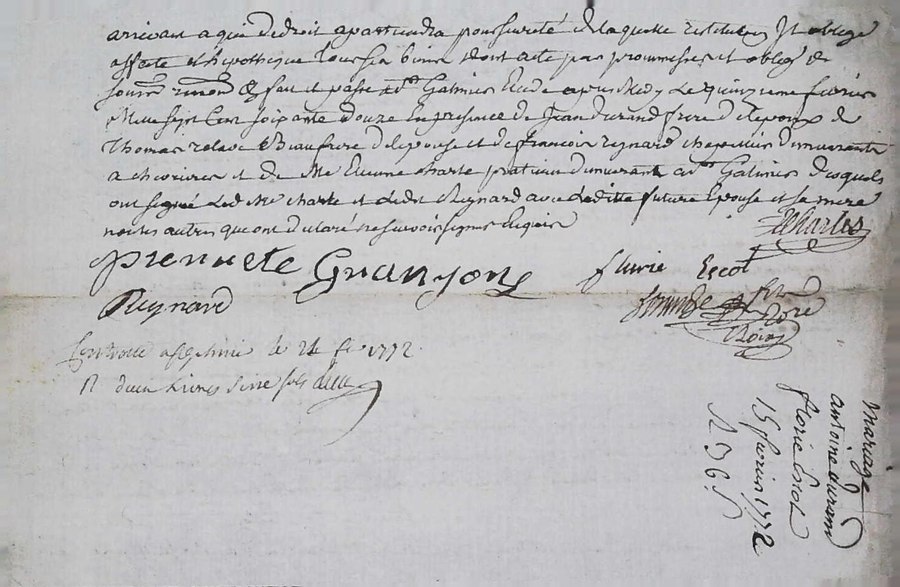 arrivant a qui de droit apartiendra pour sureté de laquelle restitution Il oblige
affecte et hipotheque tous sa biens dont acte pas prommesses et oblig de
soum renon & fait et passé a Galmier Etude apres Midy Le quinzieme fevrier
Mille sept Cent soixante douze En presence de Jean durand frere de lepoux de
Thomas relave Beaufrere de lepouse et de francois Reynard chapelier demeurant
a chevrieres et de Me Etienne charle praticien demeurant a Galmier desquels
ont signé Led Me charle et ledit Reynard avec laditte future Epouse et sa mere
non les autres que ont declaré ne savoir signer Enquis
JCharles
Pierrette Granjon
flurie Escot
Reynard
Controllé a St Galmier le 24 fe 1772
R deux Livres seize sols
Mariage
antoine durand
florie Escot
15 fevrier 1772